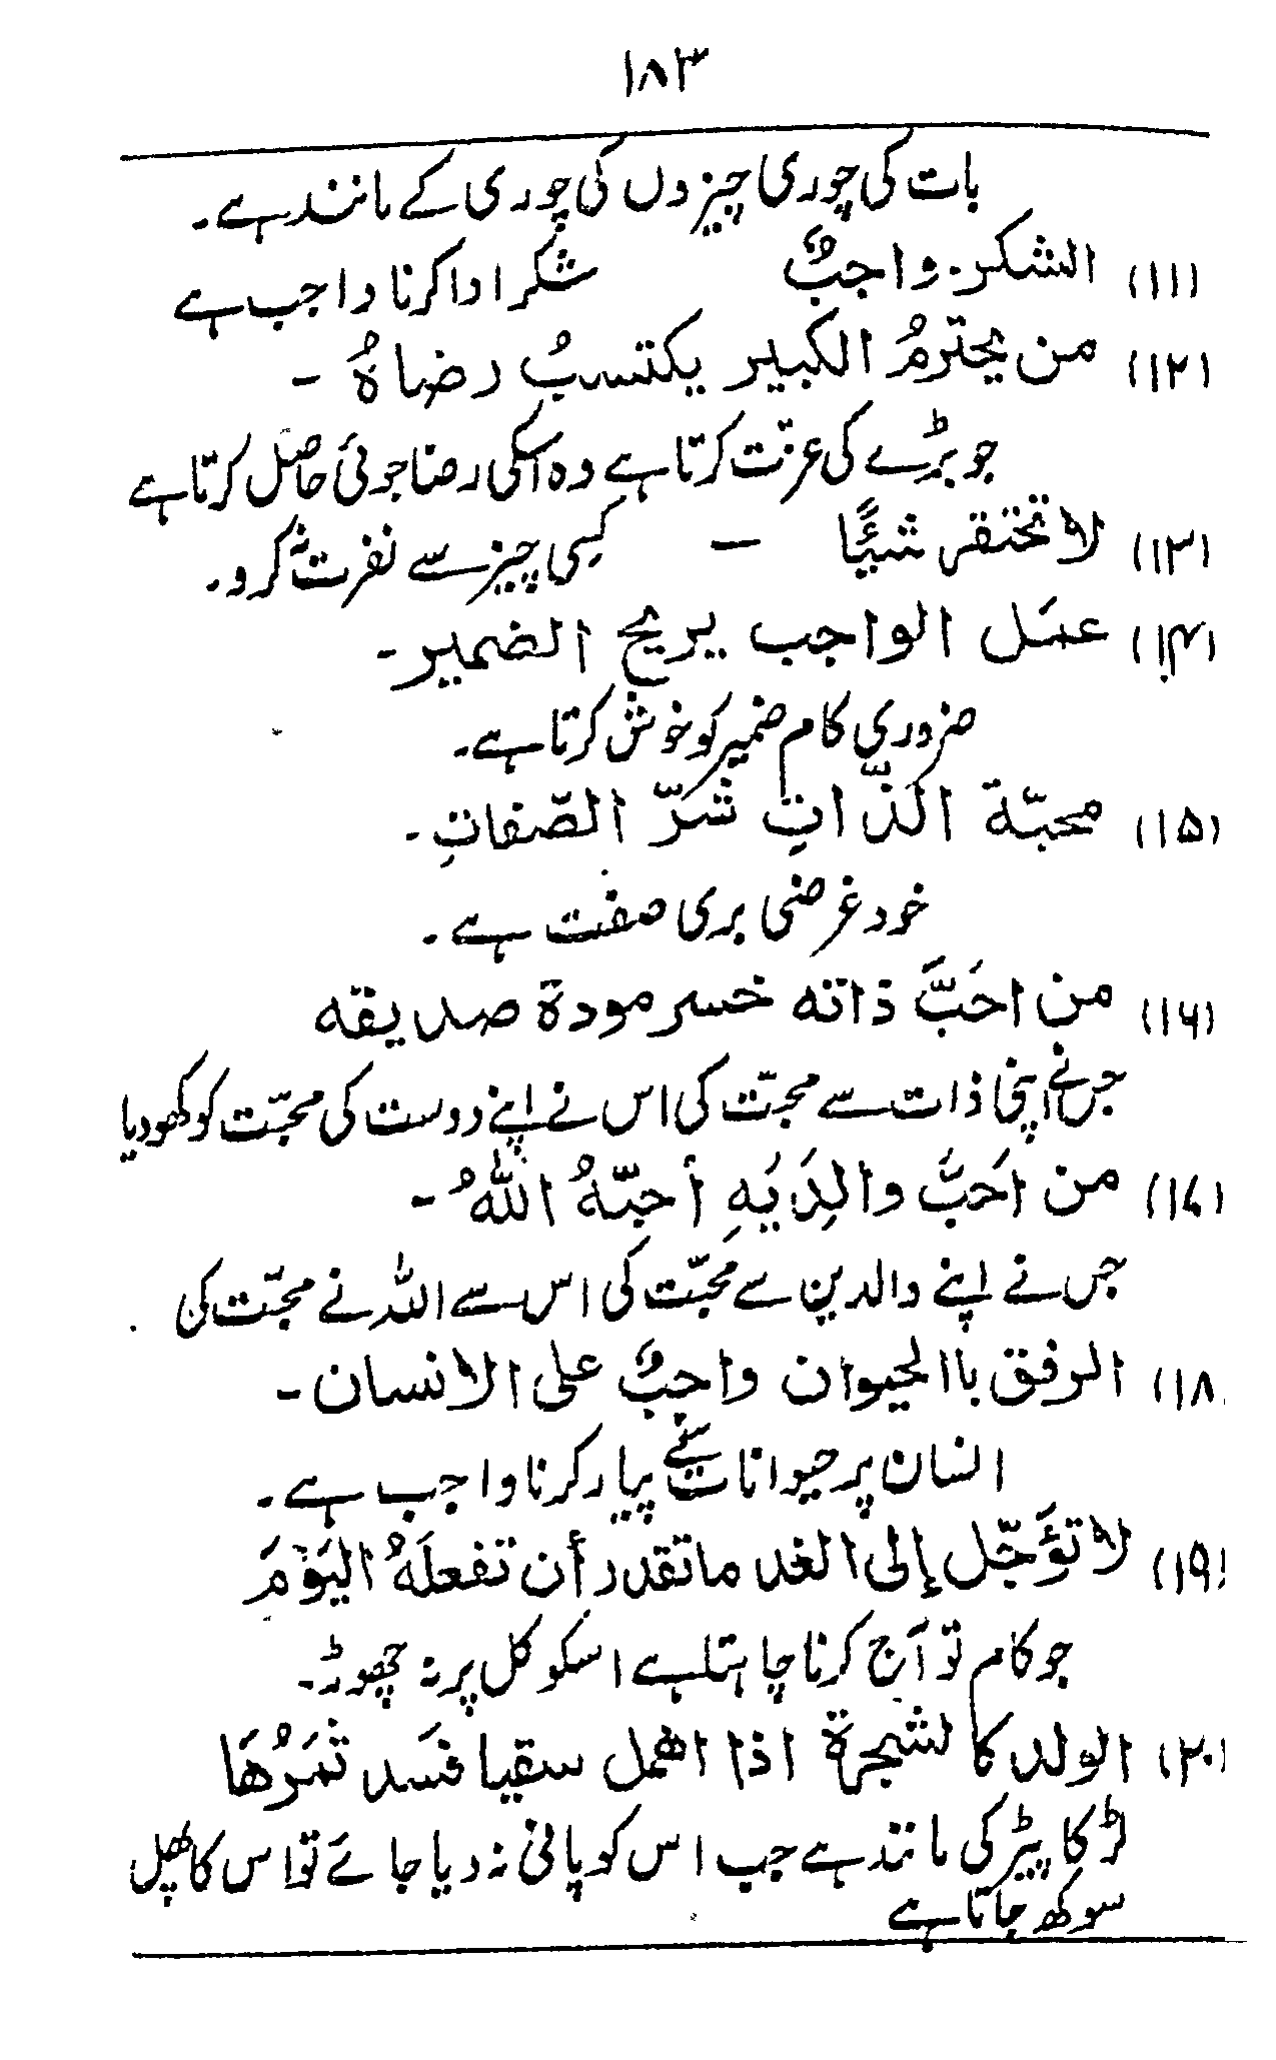 ۱۸۳
بات کی چوری چیزوں کی چوری کے مانند ہے۔
(۱۱) الشکر واجبٌ شکر ادا کرنا واجب ہے
(۱۲) من یحترمُ الکبیر یکتسبُ رضاہُ -
جو بڑے کی عزت کرتا ہے وہ اسکی رضا جوئی حاصل کرتا ہے
(۱۳) لا تحتقر شیئًا - کسی چیز سے نفرت نہ کرو۔
(۱۴) عمَل الواجب یریح الضمیر -
ضروری کام ضمیر کو خوش کرتا ہے۔
(۱۵) محبّة الذّاتِ شَرّ الصّفاتِ -
خود غرضی بری صفت ہے۔
(۱۶) من احَبَّ ذاته خسر مودة صدیقه
جس نے اپنی ذات سے محبّت کی اس نے اپنے دوست کی محبّت کو کھو دیا
(۱۷) من اَحَبَّ والِدَیَهِ أحِبّهُ اللّٰهُ -
جس نے اپنے والدین سے محبّت کی اس سے اللہ نے محبّت کی
(۱۸) الرفق باالحیوان واجبٌ علی الانسان -
انسان پر حیوانات سے پیار کرنا واجب ہے۔
(۱۹) لا تؤَجّل إلی الغد ما تقدر أن تفعلَهُ الیَوْمَ
جو کام تو آج کرنا چاہتا ہے اسکو کل پر نہ چھوڑ۔
(۲۰) الولد کالشجرة اذا اهمل سقیا فسَد ثمَرُهَا
لڑکا پیڑ کی مانند ہے جب اس کو پانی نہ دیا جائے تو اس کا پھل
سوکھ جاتا ہے